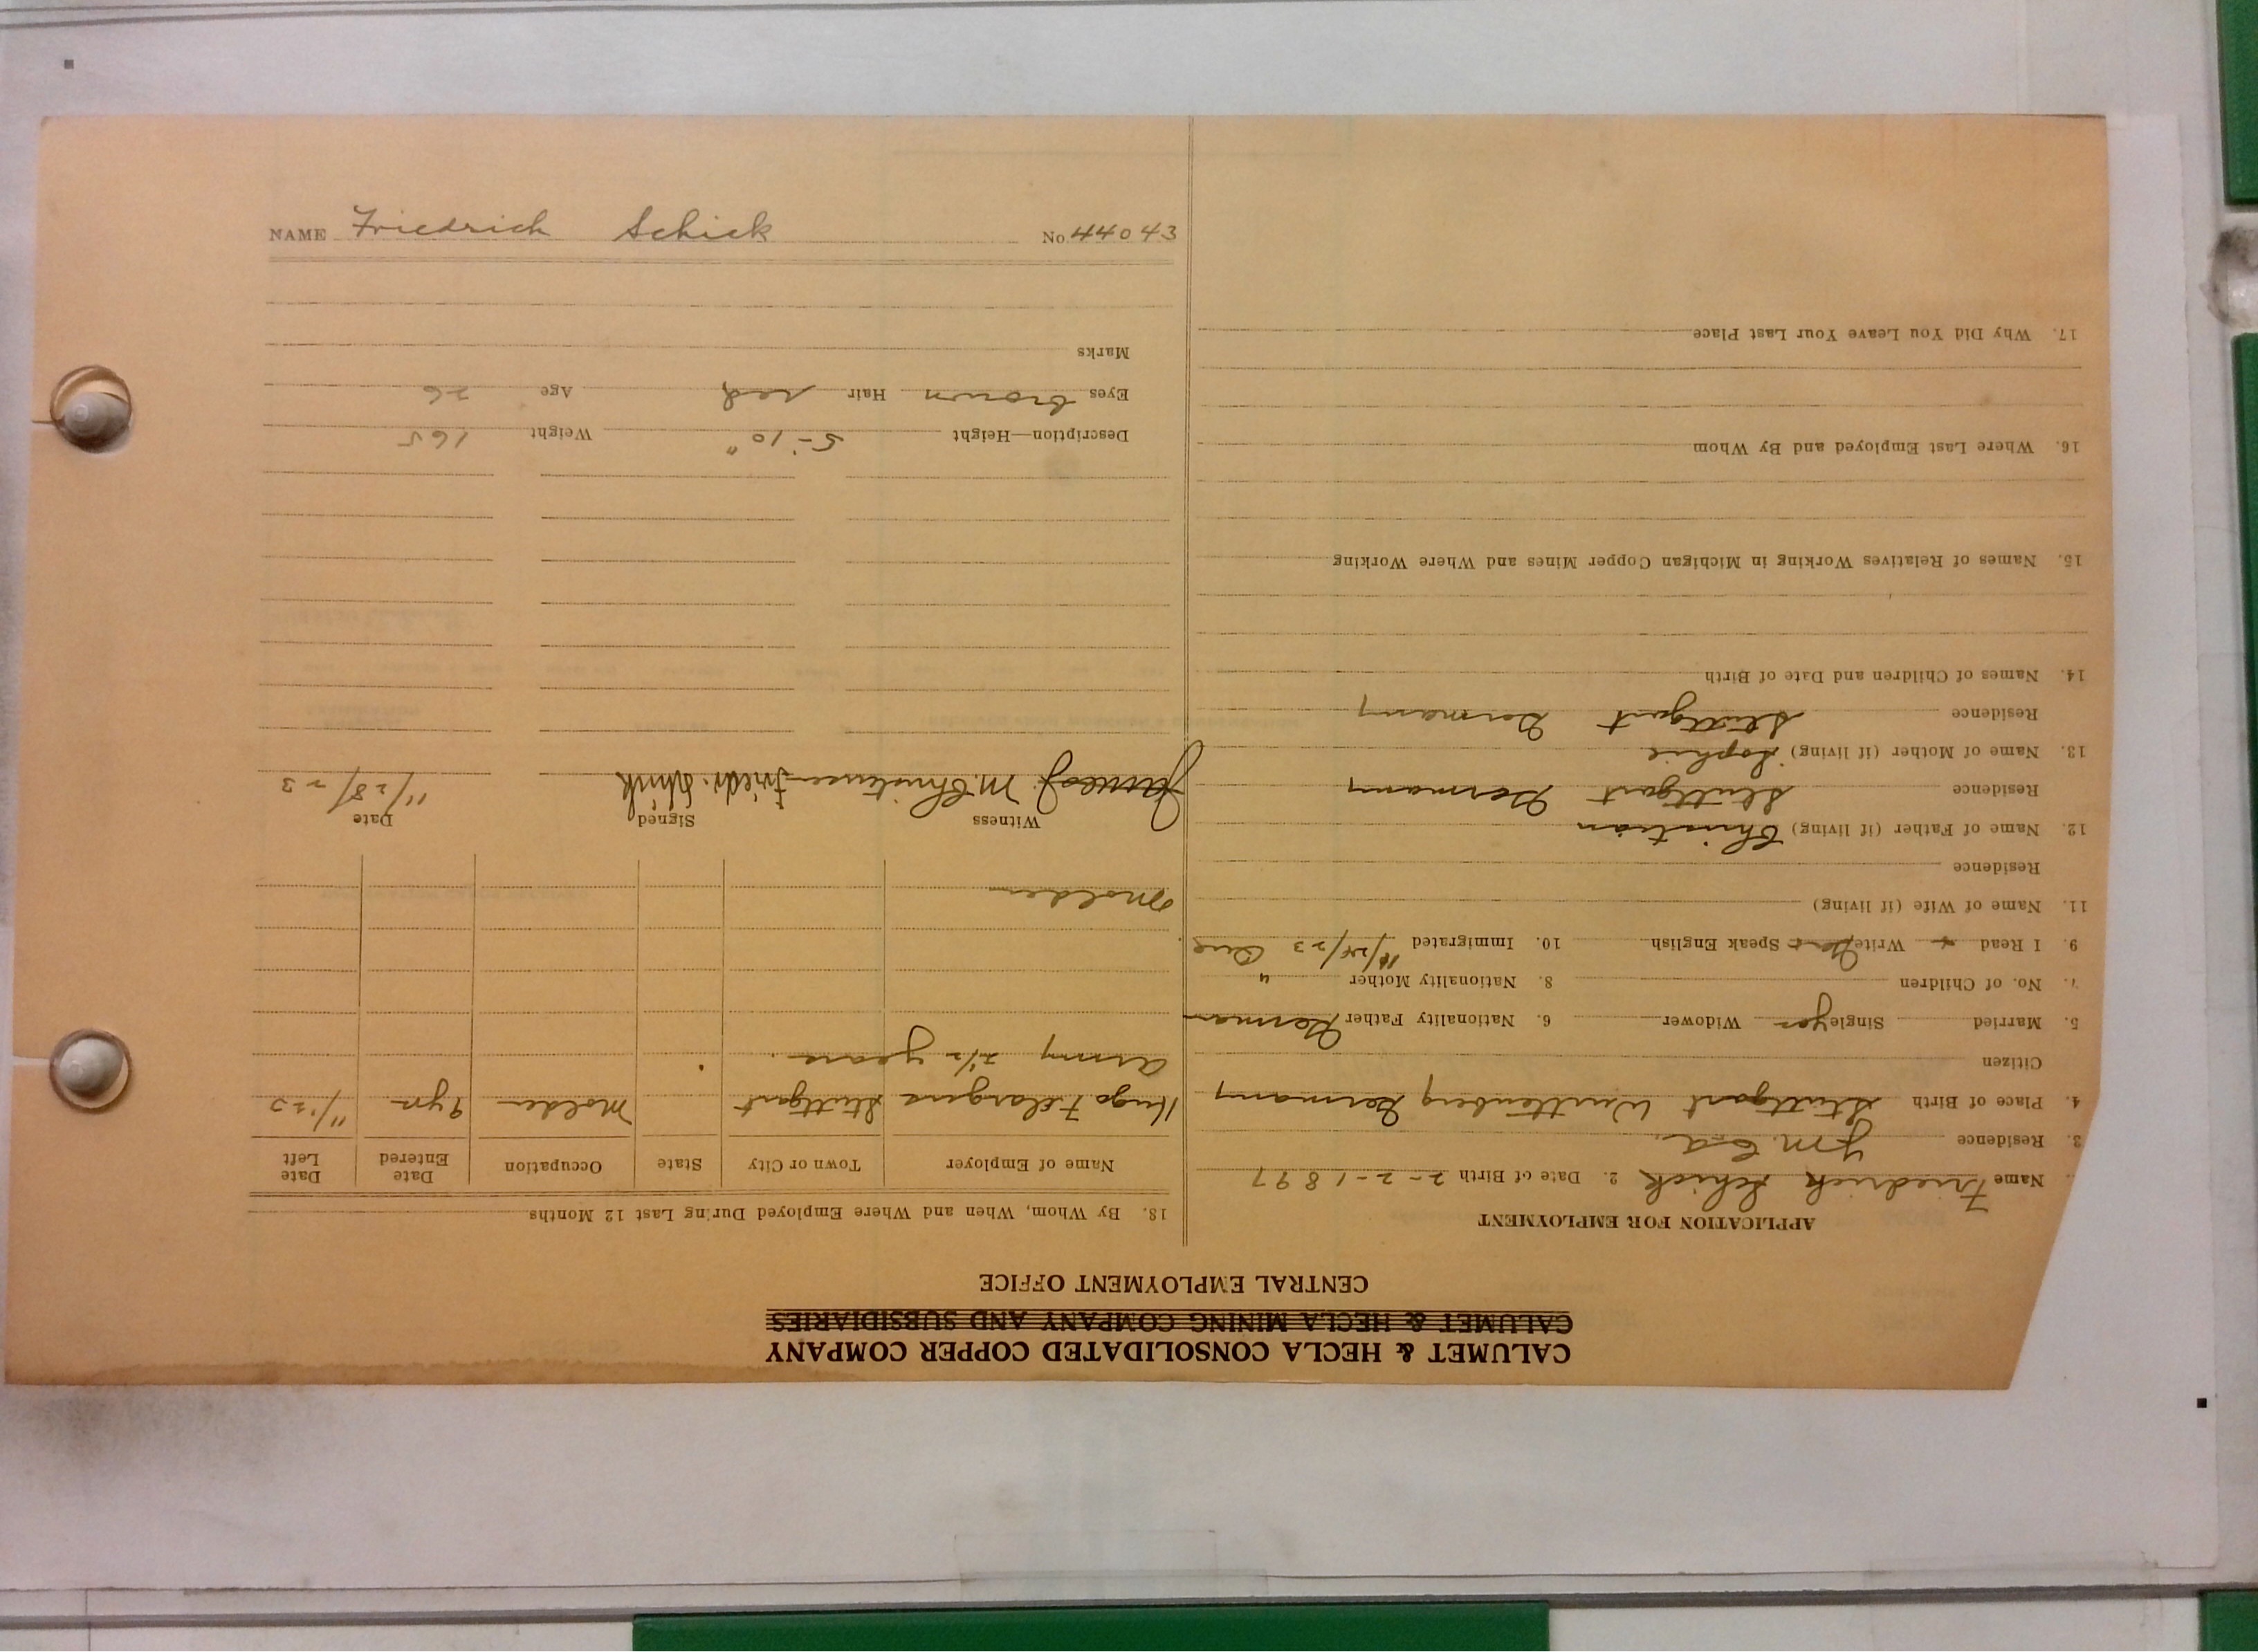 NAME Friedrich Schick No. 44043
CALUMET & HECLA CONSOLIDATED COPPER COMPANY
CALUMET & HECLA MINING COMPANY AND SUBSIDIARIES
CENTRAL EMPLOYMENT OFFICE
APPLICATION FOR EMPLOYMENT
Name Friedrich Schick 2. Date of Birth 2-2-1897
3. Residence Y.M.C.A.
4. Place of Birth Stuttgart Wurttenberg Germany
Citizen
5. Married Single yes Widower 6. Nationality Father German
7. No. of Children 8. Nationality Mother "
9. I Read + Write Speak English 10. Immigrated 11/24/23
11. Name of Wife (if living)
Residence
12. Name of Father (if living) Christian
Residence Stuttgart Germany
13. Name of Mother (if living) Sophie
Residence Stuttgart Germany
14. Names of Children and Date of Birth
15. Names of Relatives Working in Michigan Copper Mines and Where Working
16. Where Last Employed and By Whom
17. Why Did You Leave Your Last Place
18. By Whom, When and Where Employed During Last 12 Months
Name of Employer Town or City State Occupation Date Entered Date Left
Hugo Stuttgart Molder 9 yrs 11/1 23
Army 2 1/2 years.
Molder
Witness Signed Date
James J. M. Christensen Friedr. Schick 11/28/23
Description—Height 5-10" Weight 165
Eyes brown Hair red Age 26
Marks